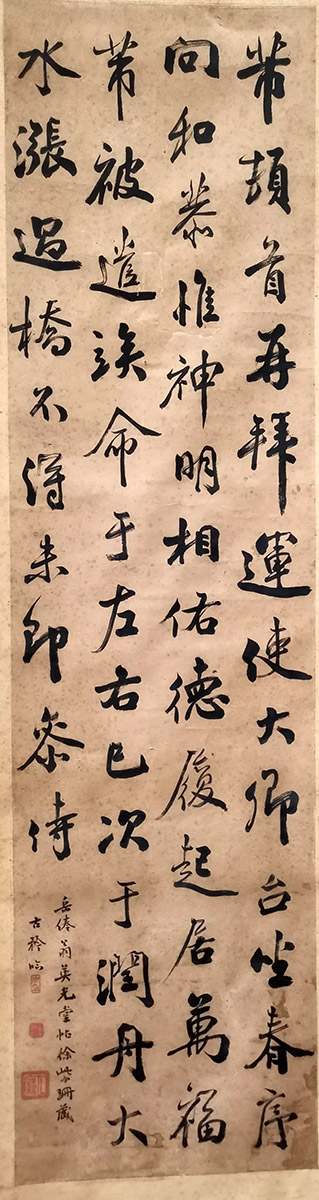 芾頓首再拜運使大卿台坐春序
向和恭惟神明相佑德履起居萬福
芾被遣俟命于左右已次于潤丹大
水漲過橋不得未即參侍
岳倦翁英光堂帖徐紫珊藏
古矜臨